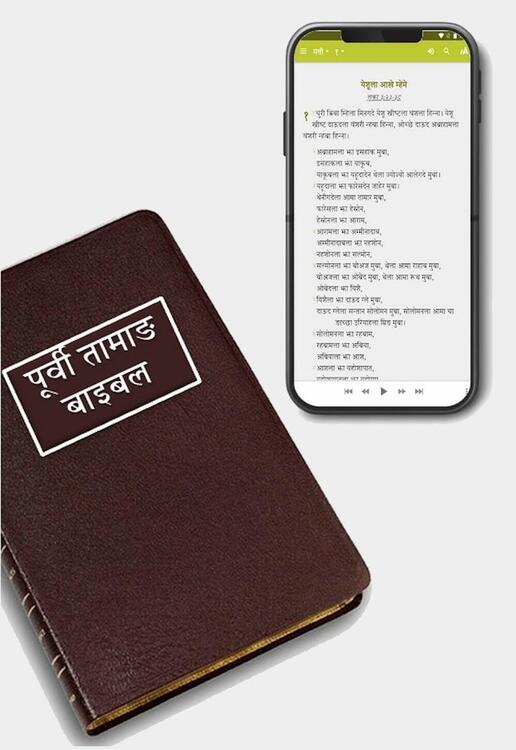 पूर्वी तामाङ
बाइबल
मत्ती
१
येशूला आखे म्हेमे
लूका ३:२३-३८
१ चुरी ब्रिबा म्हिला मिनगदे येशू ख्रीष्टला वंशला हिन्ना। येशू
ख्रीष्ट दाऊदला वंशरी न्हबा हिन्ना, ओच्छे दाऊद अब्राहामला
वंशरी न्हबा हिन्ना।
अब्राहामला झा इसहाक मुबा,
इसहाकला झा याकूब,
याकूबला झा यहूदादेन थेला ज्योज्यो आलेगदे मुबा।
यहूदाला झा फारेसदेन जाहेर मुबा।
थेनीगदेला आमा तामार मुबा,
फारेसला झा हेस्रोन,
हेस्रोनला झा आराम,
आरामला झा अम्मीनादाब,
अम्मीनादाबला झा नहशोन,
नहशोनला झा सल्मोन,
सल्मोनला झा बोअज मुबा, थेला आमा राहाब मुबा,
बोअजला झा ओबेद मुबा, थेला आमा रूथ मुबा,
ओबेदला झा यिशै,
यिशैला झा दाऊद ग्ले मुबा,
दाऊद ग्लेला सन्तान सोलोमन मुबा, सोलोमनला आमा चा
ङाच्छा उरियाहला म्रिङ मुबा।
सोलोमनला झा रहबाम,
रहबामला झा अबिया,
अबियाला झा आसा,
आसाला झा यहोशापात,